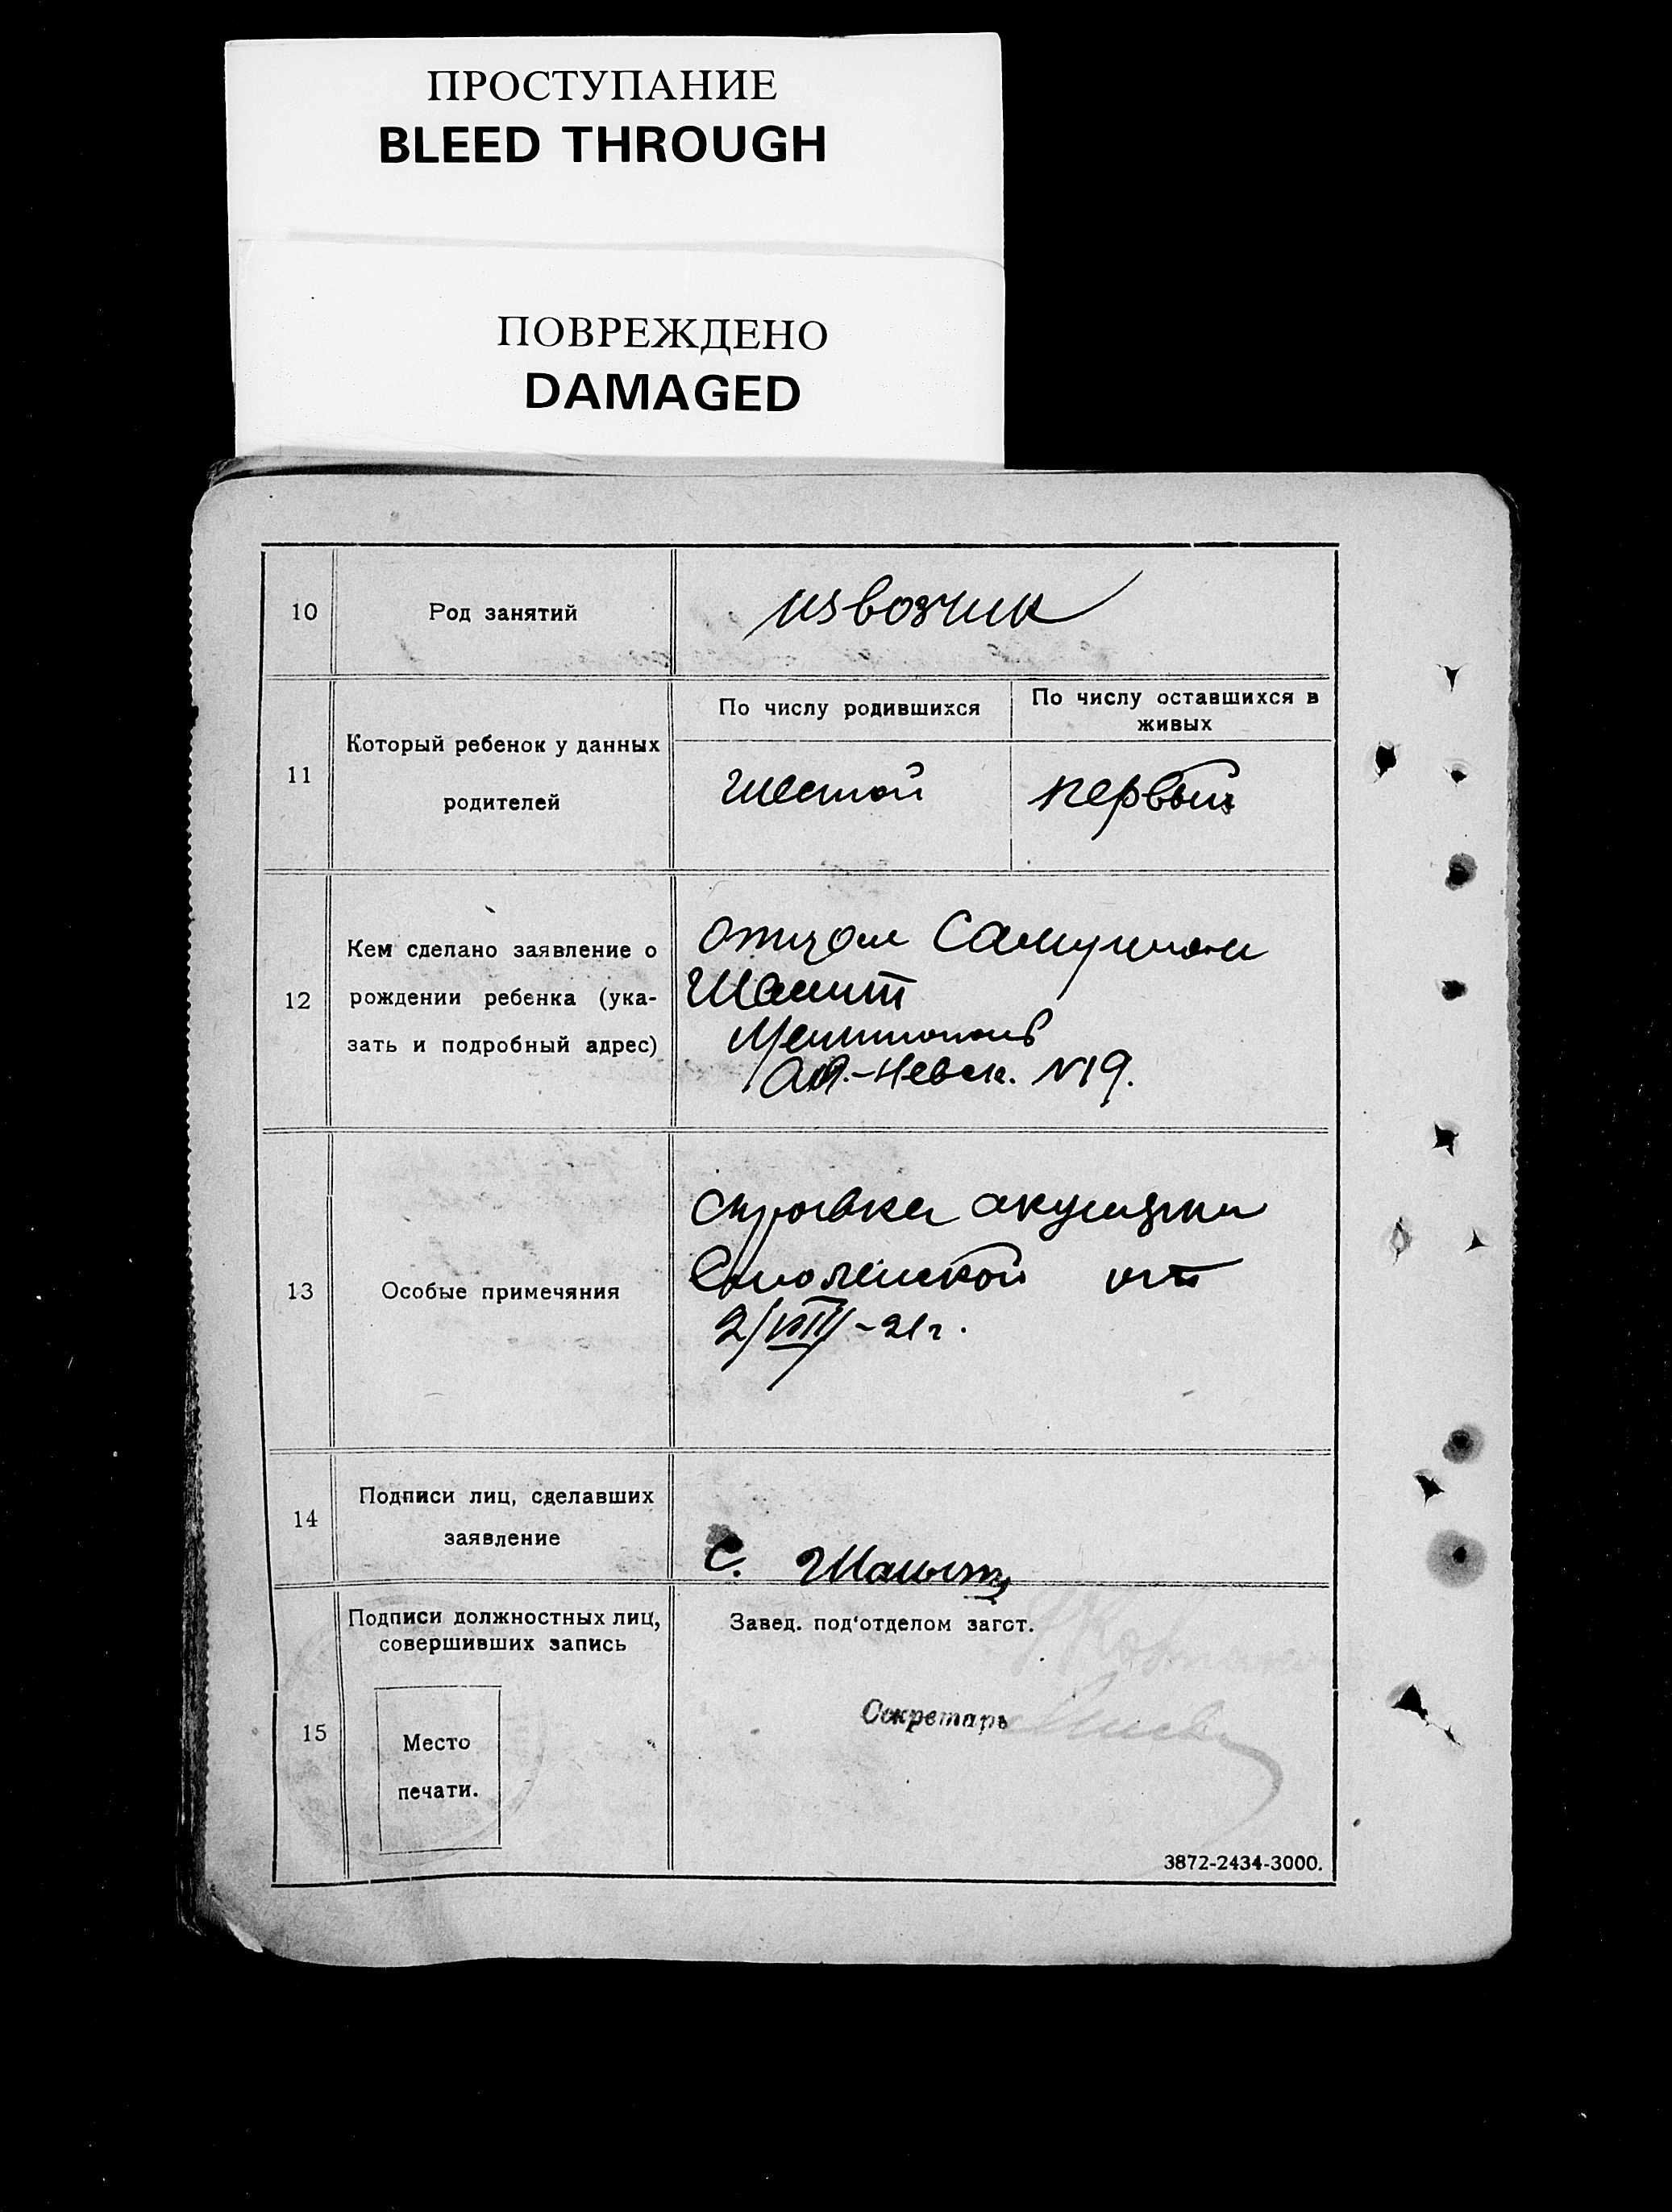 ПРОСТУПАНИЕ
BLEED THROUGH
ПОВРЕЖДЕНО
DAMAGED
10
Род занятий
извозчик
11
Который ребенок у данных
родителей
По числу родившихся
шестой
По числу оставшихся в
живых
первый
12
Кем сделано заявление о
рождении ребенка (ука-
зать и подробный адрес)
отцом
-Невск. №19.
13
Особые примечяния
справка акушерки
Смоленской от
2/VIII-21г.
14
Подписи лиц, сделавших
заявление
С.
15
Подписи должностных лиц,
совершивших запись
Место
печати.
Завед. под'отделом загст.
Секретарь
3872-2434-3000.